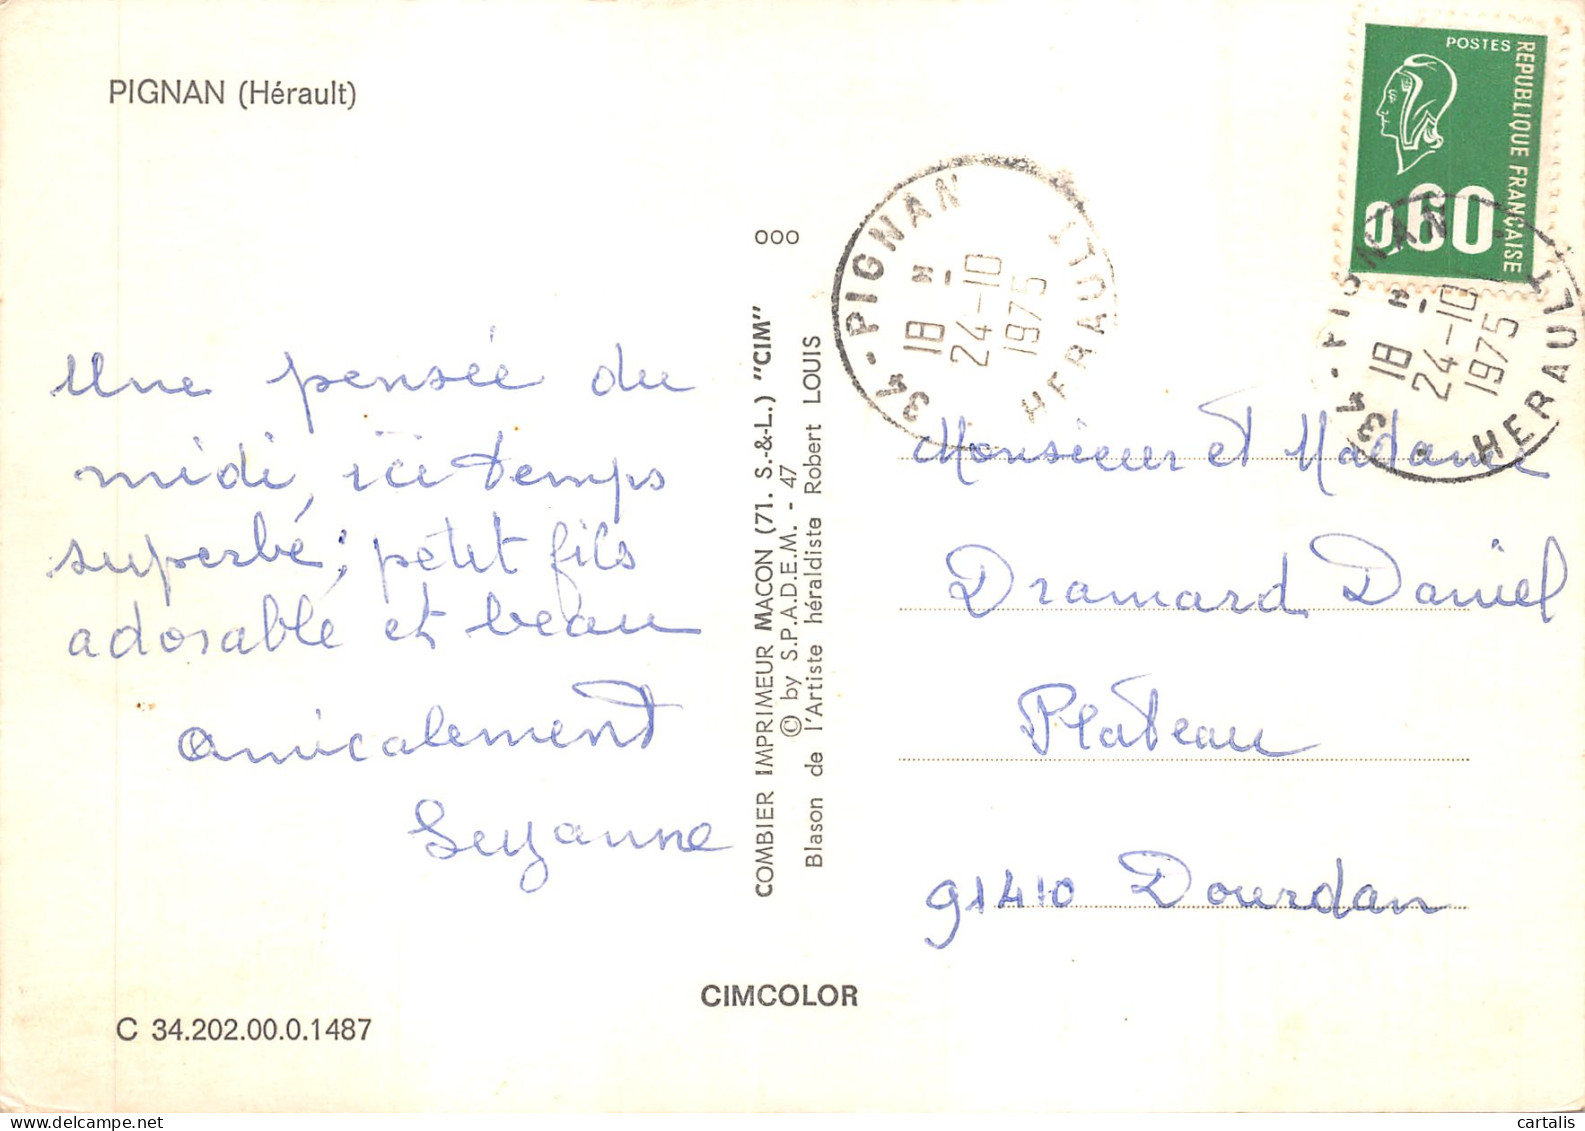 PIGNAN (Hérault)
Une pensée du
midi, ici temps
superbe; petit fils
adorable et beau
amicalement
Suzanne
C 34.202.00.0.1487
000
COMBIER IMPRIMEUR MACON (71. S.-&-L.) "CIM"
© by S.P.A.D.E.M. - 47
Blason de l'Artiste héraldiste Robert LOUIS
CIMCOLOR
34-PIGNAN
18 H
24-10
1975
HERAULT
POSTES
REPUBLIQUE FRANÇAISE
0,60
34-PIGNAN
18 H
24-10
1975
HERAULT
Monsieur et Madame
Dramard Daniel
Plateau
91410 Dourdan
cartalis